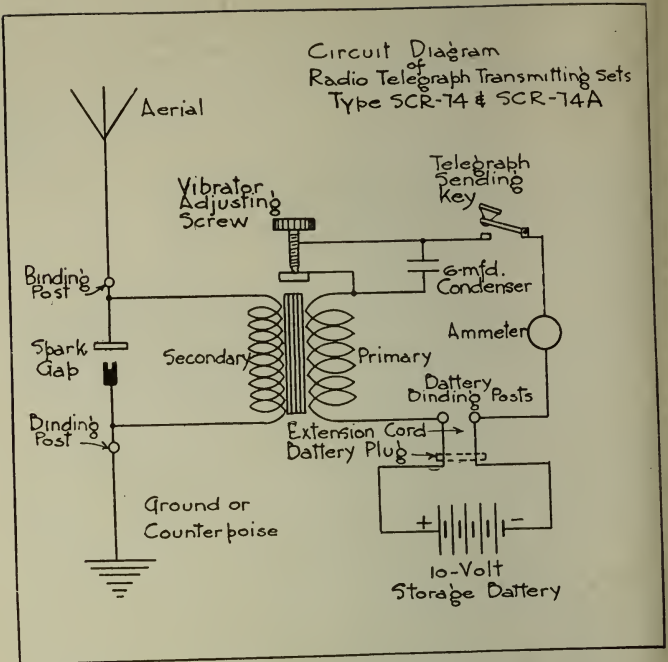 Circuit Diagram
of
Radio Telegraph Transmitting Sets
Type SCR-74 & SCR-74A
Aerial
Telegraph
Sending
Key
Vibrator
Adjusting
Screw
Binding
Post
6-mfd.
Condenser
Spark
Gap
Secondary
Primary
Ammeter
Battery
Binding Posts
Binding
Post
Extension Cord
Battery Plug
Ground or
Counterpoise
+
-
10-Volt
Storage Battery